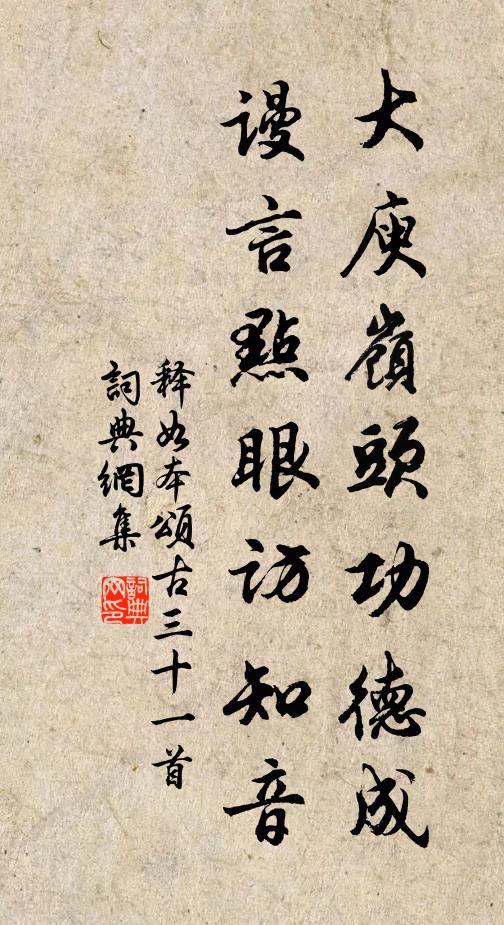 大庾嶺頭功德成
謾言點眼访知音
释如本頌古三十一首
詞典網集
詞典網印